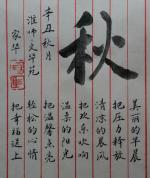 秋
美丽的早晨
把压力释放
清凉的晨风
把欢乐吹响
温柔的阳光
把温馨点亮
轻松的心情
把幸福送上
辛丑秋月
淮师文华苑
家华